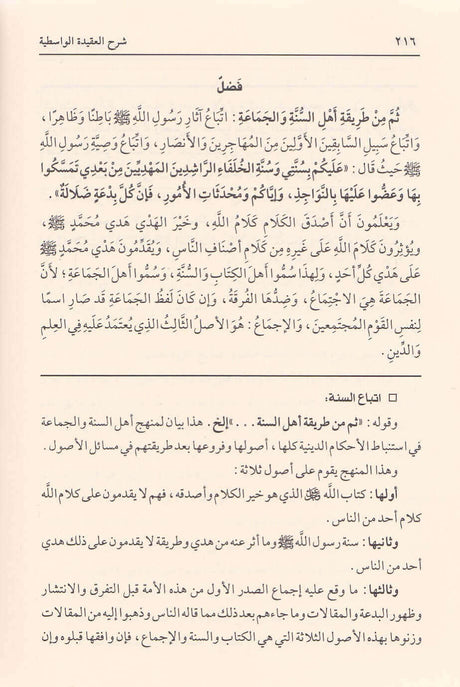 ٢١٦ شرح العقيدة الواسطية
فَصْلٌ
ثُمَّ مِنْ طَرِيقَةِ أَهْلِ السُّنَّةِ وَالجَمَاعَةِ: اتِّبَاعُ آثَارِ رَسُولِ اللَّهِ ﷺ بَاطِنًا وَظَاهِرًا،
وَاتِّبَاعُ سَبِيلِ السَّابِقِينَ الأَوَّلِينَ مِنَ المُهَاجِرِينَ وَالأَنْصَارِ، وَاتِّبَاعُ وَصِيَّةِ رَسُولِ اللَّهِ
ﷺ حَيثُ قَالَ: «عَلَيكُمْ بِسُنَّتِي وَسُنَّةِ الخُلَفَاءِ الرَّاشِدِينَ المَهْدِيِّينَ مِنْ بَعْدِي تَمَسَّكُوا
بِهَا وَعَضُّوا عَلَيْهَا بِالنَّوَاجِذِ، وَإِيَّاكُمْ وَمُحْدَثَاتِ الأُمُورِ، فَإِنَّ كُلَّ بِدْعَةٍ ضَلَالَةٌ».
وَيَعْلَمُونَ أَنَّ أَصْدَقَ الكَلَامِ كَلَامُ اللَّهِ، وَخَيرَ الهَدْيِ هَدي مُحَمَّدٍ ﷺ،
ويُؤْثِرُونَ كَلَامَ اللَّهِ عَلَى غَيرِهِ مِن كَلَامِ أَصْنَافِ النَّاسِ، وَيُقَدِّمُونَ هَديَ مُحَمَّدٍ ﷺ
عَلَى هَدْيِ كُلِّ أحدٍ، وَلِهذا سُمُّوا أَهلَ الكِتَابِ والسُّنَّةِ، وَسُمُّوا أَهلَ الجَمَاعَةِ؛ لأنَّ
الجَمَاعَةَ هِيَ الاجْتِمَاعُ، وَضِدُّهَا الفُرقَةُ، وَإِن كَانَ لَفظُ الجَمَاعَةِ قَد صَارَ اسمًا
لِنفسِ القَوْمِ المُجتَمِعينَ، وَالإجمَاعُ: هُوَ الأصلُ الثَّالِثُ الذِي يُعتَمَدُ عَلَيهِ فِي العِلمِ
وَالدِّينِ.
□ اتباع السنة:
وقوله: «ثم من طريقة أهل السنة...» إلخ. هذا بيان لمنهج أهل السنة والجماعة
في استنباط الأحكام الدينية كلها، أصولها وفروعها بعد طريقتهم في مسائل الأصول.
وهذا المنهج يقوم على أصول ثلاثة:
أولها: كتاب الله ﷿ الذي هو خير الكلام وأصدقه، فهم لا يقدمون على كلام الله
كلام أحد من الناس.
وثانيها: سنة رسول الله ﷺ وما أثر عنه من هدي وطريقة لا يقدمون على ذلك هدي
أحد من الناس.
وثالثها: ما وقع عليه إجماع الصدر الأول من هذه الأمة قبل التفرق والانتشار
وظهور البدعة والمقالات وما جاءهم بعد ذلك مما قاله الناس وذهبوا إليه من المقالات
وزنوها بهذه الأصول الثلاثة التي هي الكتاب والسنة والإجماع، فإن وافقها قبلوه وإن